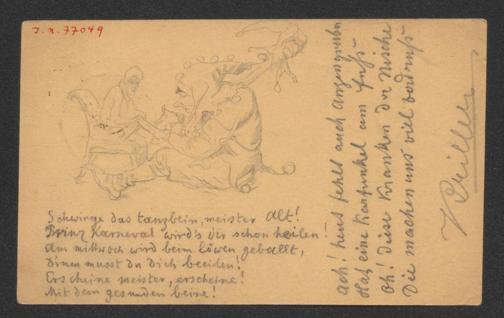 J. N. 77049
Schwinge das tanzbein, meister Alt!
Prinz Karneval wird's dir schon heilen!
Am mittwoch wird beim löwen geballt,
Dinen musst du Dich beeilen!
Erscheine meister, erscheine!
Mit dem gesunden beine!
Ach! heut fehlt auch
Hat eine Karfunkel am Fuß
Oh! diese Kranken der Nische
Die machen uns viel Verdruß